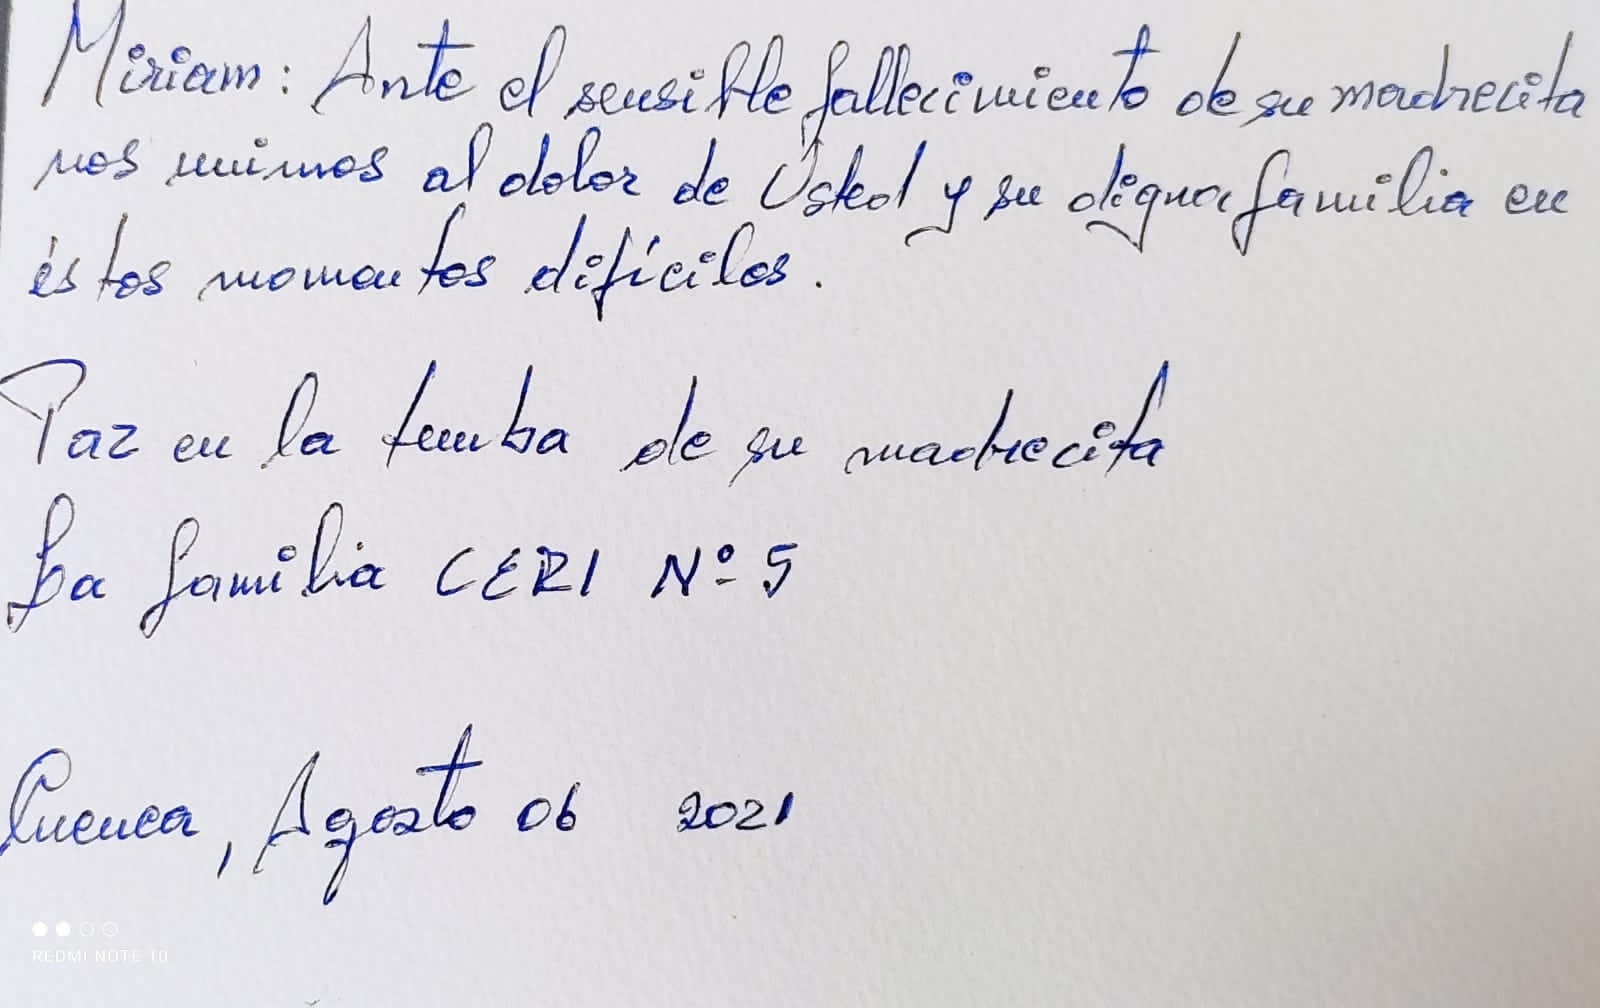 Miriam: Ante el sensible fallecimiento de su madrecita
nos unimos al dolor de Usted y su digna familia en
éstos momentos difíciles.
Paz en la tumba de su madrecita
La familia CERI Nº 5
Cuenca, Agosto 06 2021
REDMI NOTE 10